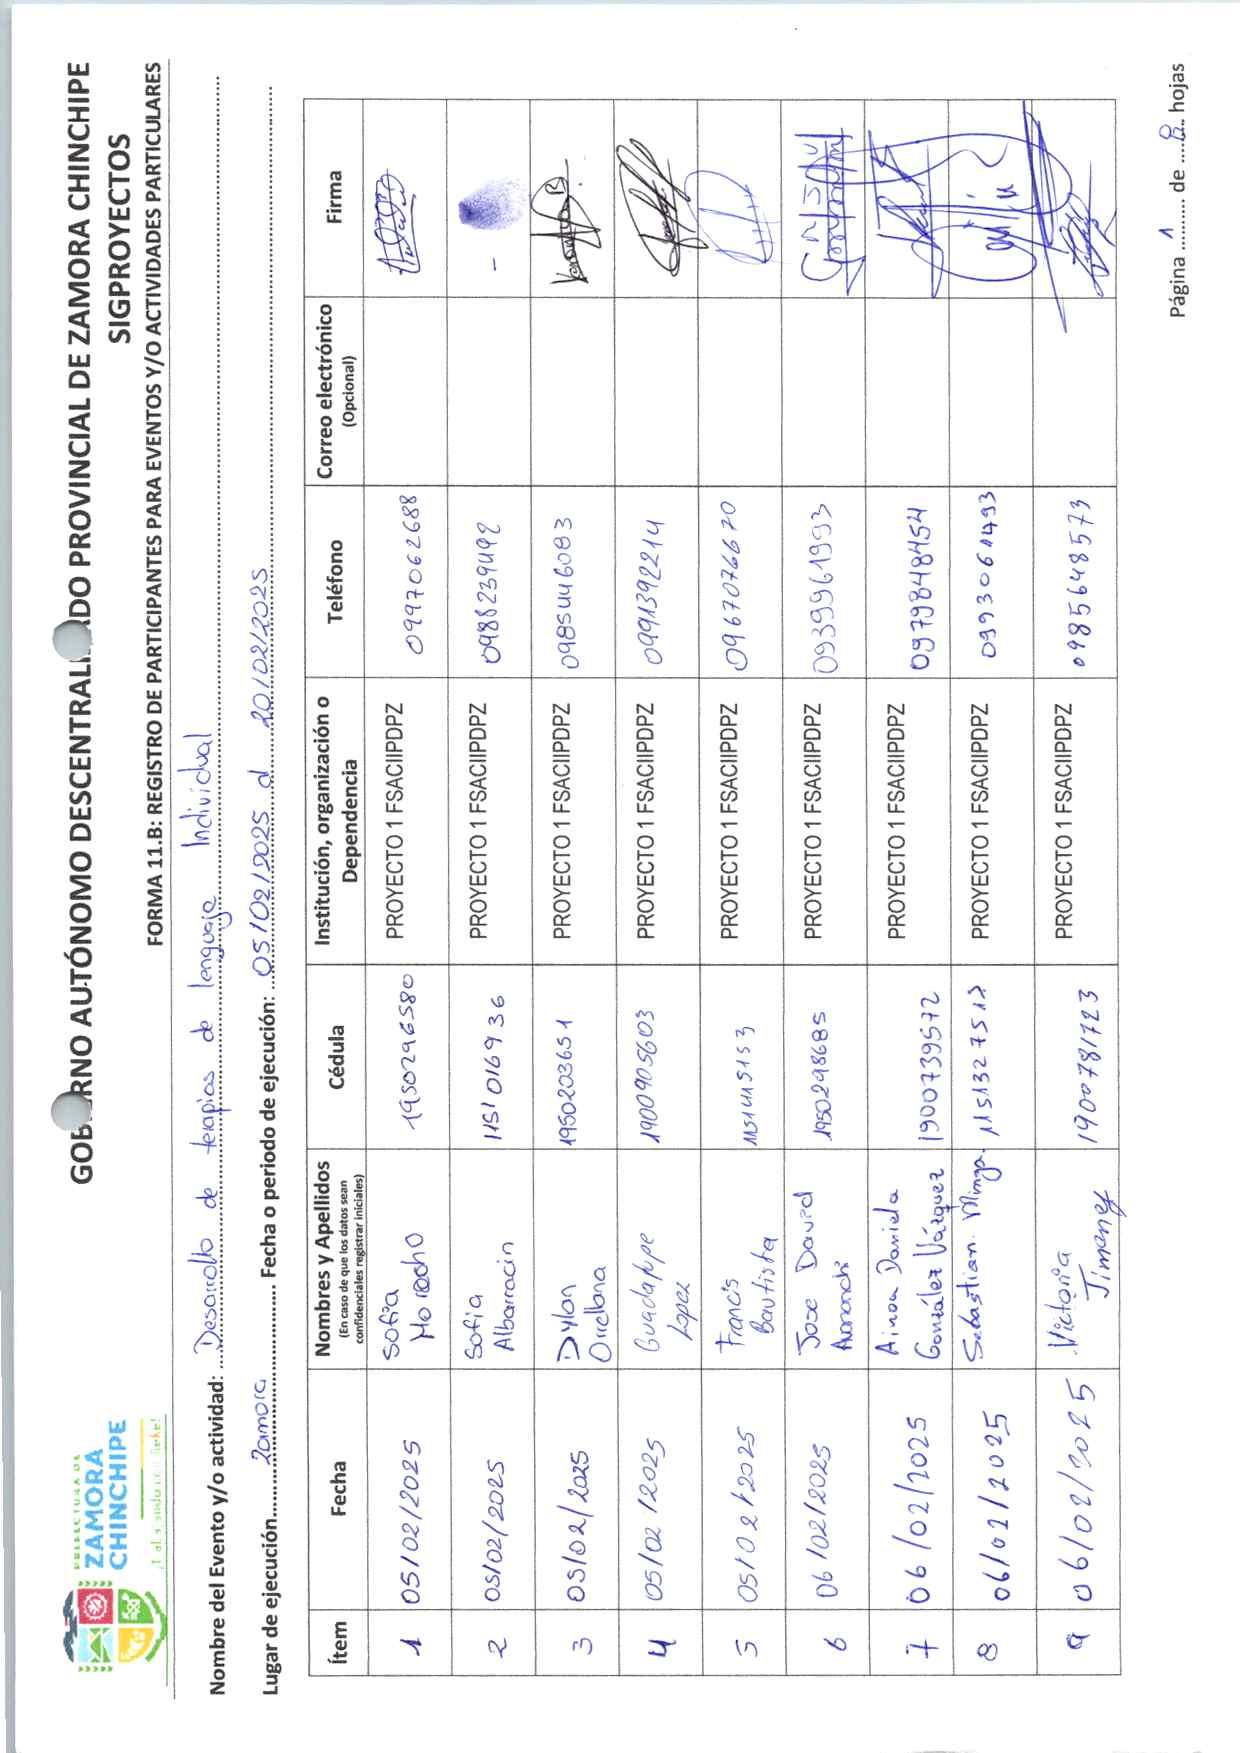 PREFECTURA DE
ZAMORA
CHINCHIPE
GOBIERNO AUTÓNOMO DESCENTRALIZADO PROVINCIAL DE ZAMORA CHINCHIPE
SIGPROYECTOS
FORMA 11.B: REGISTRO DE PARTICIPANTES PARA EVENTOS Y/O ACTIVIDADES PARTICULARES
Nombre del Evento y/o actividad: Desarrollo de terapias de lenguaje Individual
Lugar de ejecución Zamora Fecha o periodo de ejecución: 05/02/2025 al 20/02/2025
Ítem Fecha Nombres y Apellidos (En caso de que los datos sean confidenciales registrar iniciales) Cédula Institución, organización o Dependencia Teléfono Correo electrónico (Opcional) Firma
1 05/02/2025 Sofia Morocho 1950296580 PROYECTO 1 FSACIIPDPZ 0997062688
2 05/02/2025 Sofia Albarracin 1151016936 PROYECTO 1 FSACIIPDPZ 0988239492 -
3 05/02/2025 Dylan Orellana 1950203651 PROYECTO 1 FSACIIPDPZ 0985446083
4 05/02/2025 Guadalupe Lopez 1900905603 PROYECTO 1 FSACIIPDPZ 0991392214
5 05/02/2025 Francis Bautista 1151415153 PROYECTO 1 FSACIIPDPZ 0967076670
6 06/02/2025 Jose David 1950298685 PROYECTO 1 FSACIIPDPZ 0939961993
7 06/02/2025 Ainoa Daniela González Vázquez 1900739572 PROYECTO 1 FSACIIPDPZ 0979848454
8 06/02/2025 Sebastian Minga. 1151327512 PROYECTO 1 FSACIIPDPZ 0993061493
9 06/02/2025 Victoria Jimenez 1900781723 PROYECTO 1 FSACIIPDPZ 0985648573
Página 1 de 8 hojas